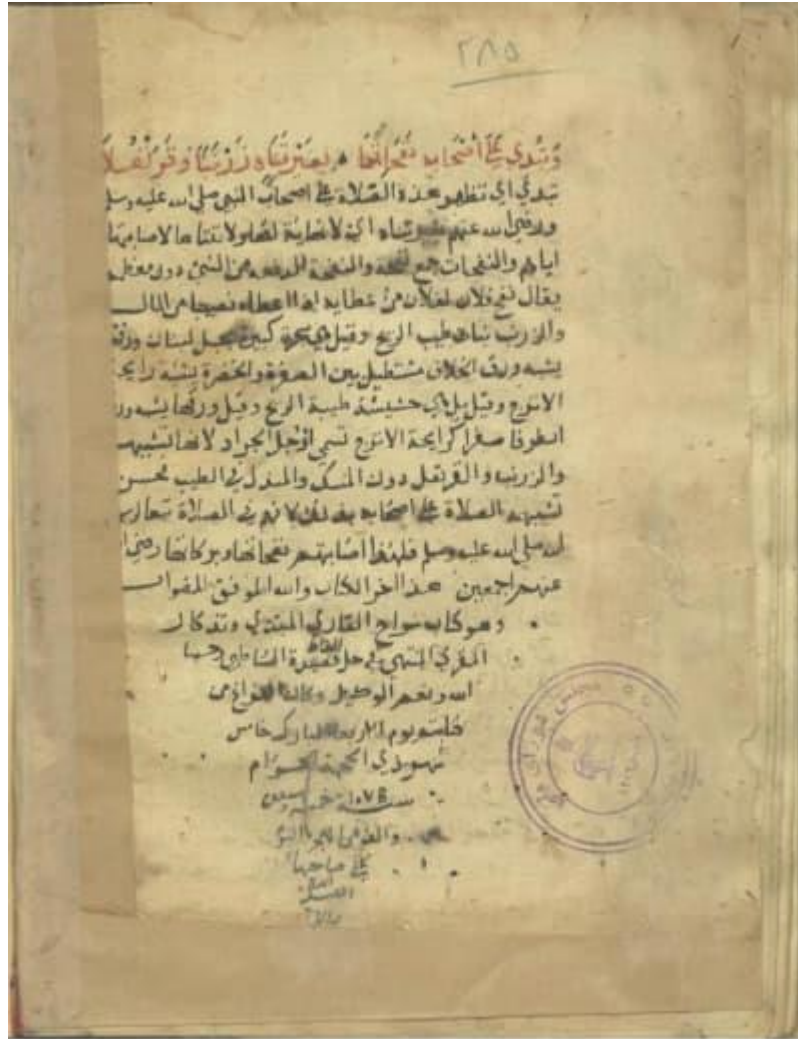 ٢٨٥
وتبدي على أصحابه نفحاتها بغير تناه زرنبا وقرنفلا
تبدي اي تظهر هذه الصلاة على اصحاب النبي صلى الله عليه وسلم
ورضي الله عنهم بغير تناه اي لا نهاية لها ولا
اياهم والنفحات جمع نفحة والنفحة الدفعة من الشئ دون معظمه
يقال نفح فلان لفلان من عطايه اذا اعطاه نصيبا من المال
والزرنب نبات طيب الريح وقيل هي شجرة كبيرة بجبل لبنان ورقه
يشبه ورق الخلاف مستطيل بين الصفرة والخضرة يشبه رايحة
الاترج وقيل بل هي حشيشة طيبة الريح وقيل ورقها يشبه ورق
الطرفا صفرا كرايحة الاترج تسمى ارجل الجراد لانها تشبهه
والزرنب والقرنفل دون المسك والمندل في الطيب فحسن
تشبيه الصلاة على اصحابه بذلك لانهم في الصلاة تبعا
صلى الله عليه وسلم فلهذا اصابتهم نفحاتها وبركاتها رضي الله
عنهم اجمعين هذا اخر الكتاب والله الموفق للصواب
وهو كتاب سراج القاري المبتدي وتذكار
المقري المنتهي في حل قصيدة الشاطبي وحسبنا
الله ونعم الوكيل وكان الفراغ من
كتابته يوم الاربعا المبارك خامس
شهر ذي الحجة الحرام
سنة ١٠٧٥ خمسة وسبعين
والف من الهجرة النبوية
على صاحبها
افضل
الصلاة
مجلس شورای ملی